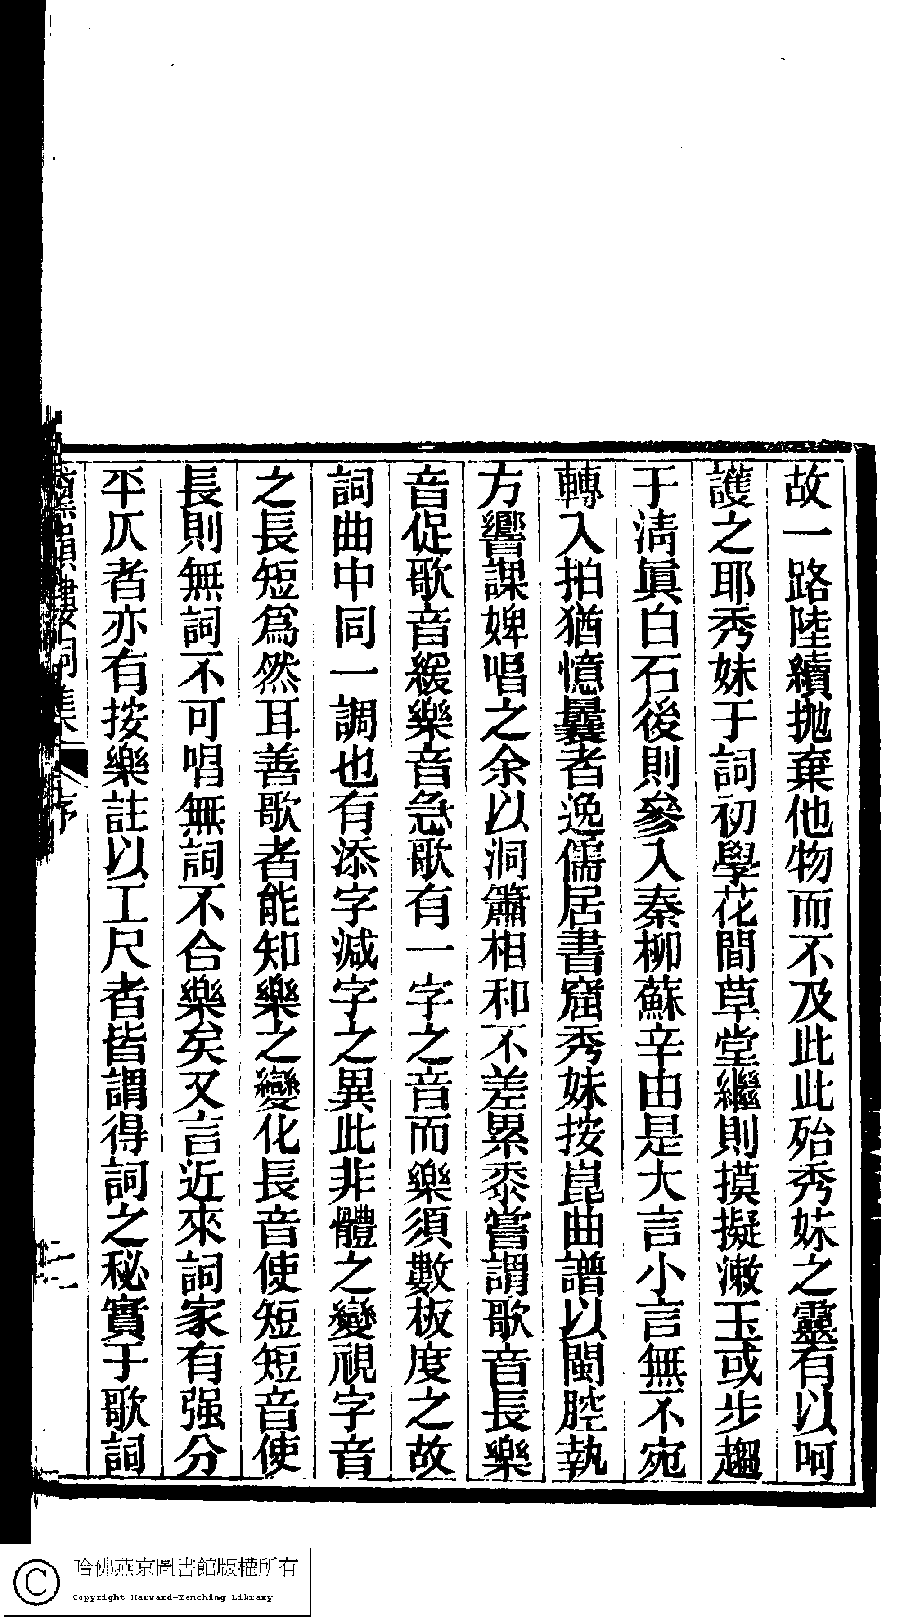 故一路陸續拋棄他物而不及此此殆秀妹之靈有以呵
護之耶秀妹于詞初學花間草堂繼則摸擬漱玉或步趨
于淸眞白石後則參入秦柳蘇辛由是大言小言無不宛
轉入拍猶憶曩者逸儒居書窟秀妹按崑曲譜以閩腔執
方響課婢唱之余以洞簫相和不差累黍嘗謂歌音長樂
音促歌音緩樂音急歌有一字之音而樂須數板度之故
詞曲中同一調也有添字減字之異此非體之變視字音
之長短爲然耳善歌者能知樂之變化長音使短短音使
長則無詞不可唱無詞不合樂矣又言近來詞家有强分
平仄者亦有按樂註以工尺者皆謂得詞之秘實于歌詞
詞集
序
二
哈佛燕京圖書館版權所有
Copyright Harvard-Yenching Library